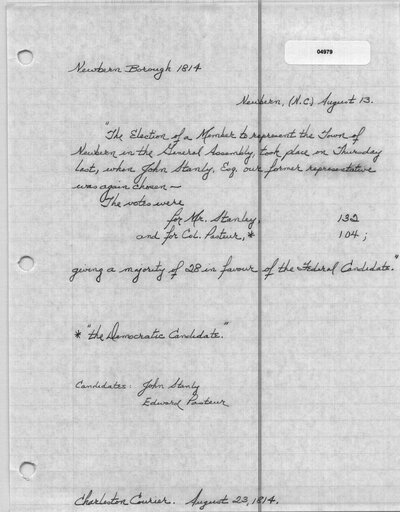 04979
Newbern Borough 1814
Newbern, (N.C.) August 13.
"The Election of a Member to represent the Town of
Newbern in the General Assembly, took place on Thursday
last, when John Stanly, Esq. our former representative
was again chosen —
The votes were
for Mr. Stanley, 132
and for Col. Pasteur,* 104;
giving a majority of 28 in favour of the Federal Candidate."
* "the Democratic Candidate."
Candidates: John Stanly
Edward Pasteur
Charleston Courier. August 23, 1814.